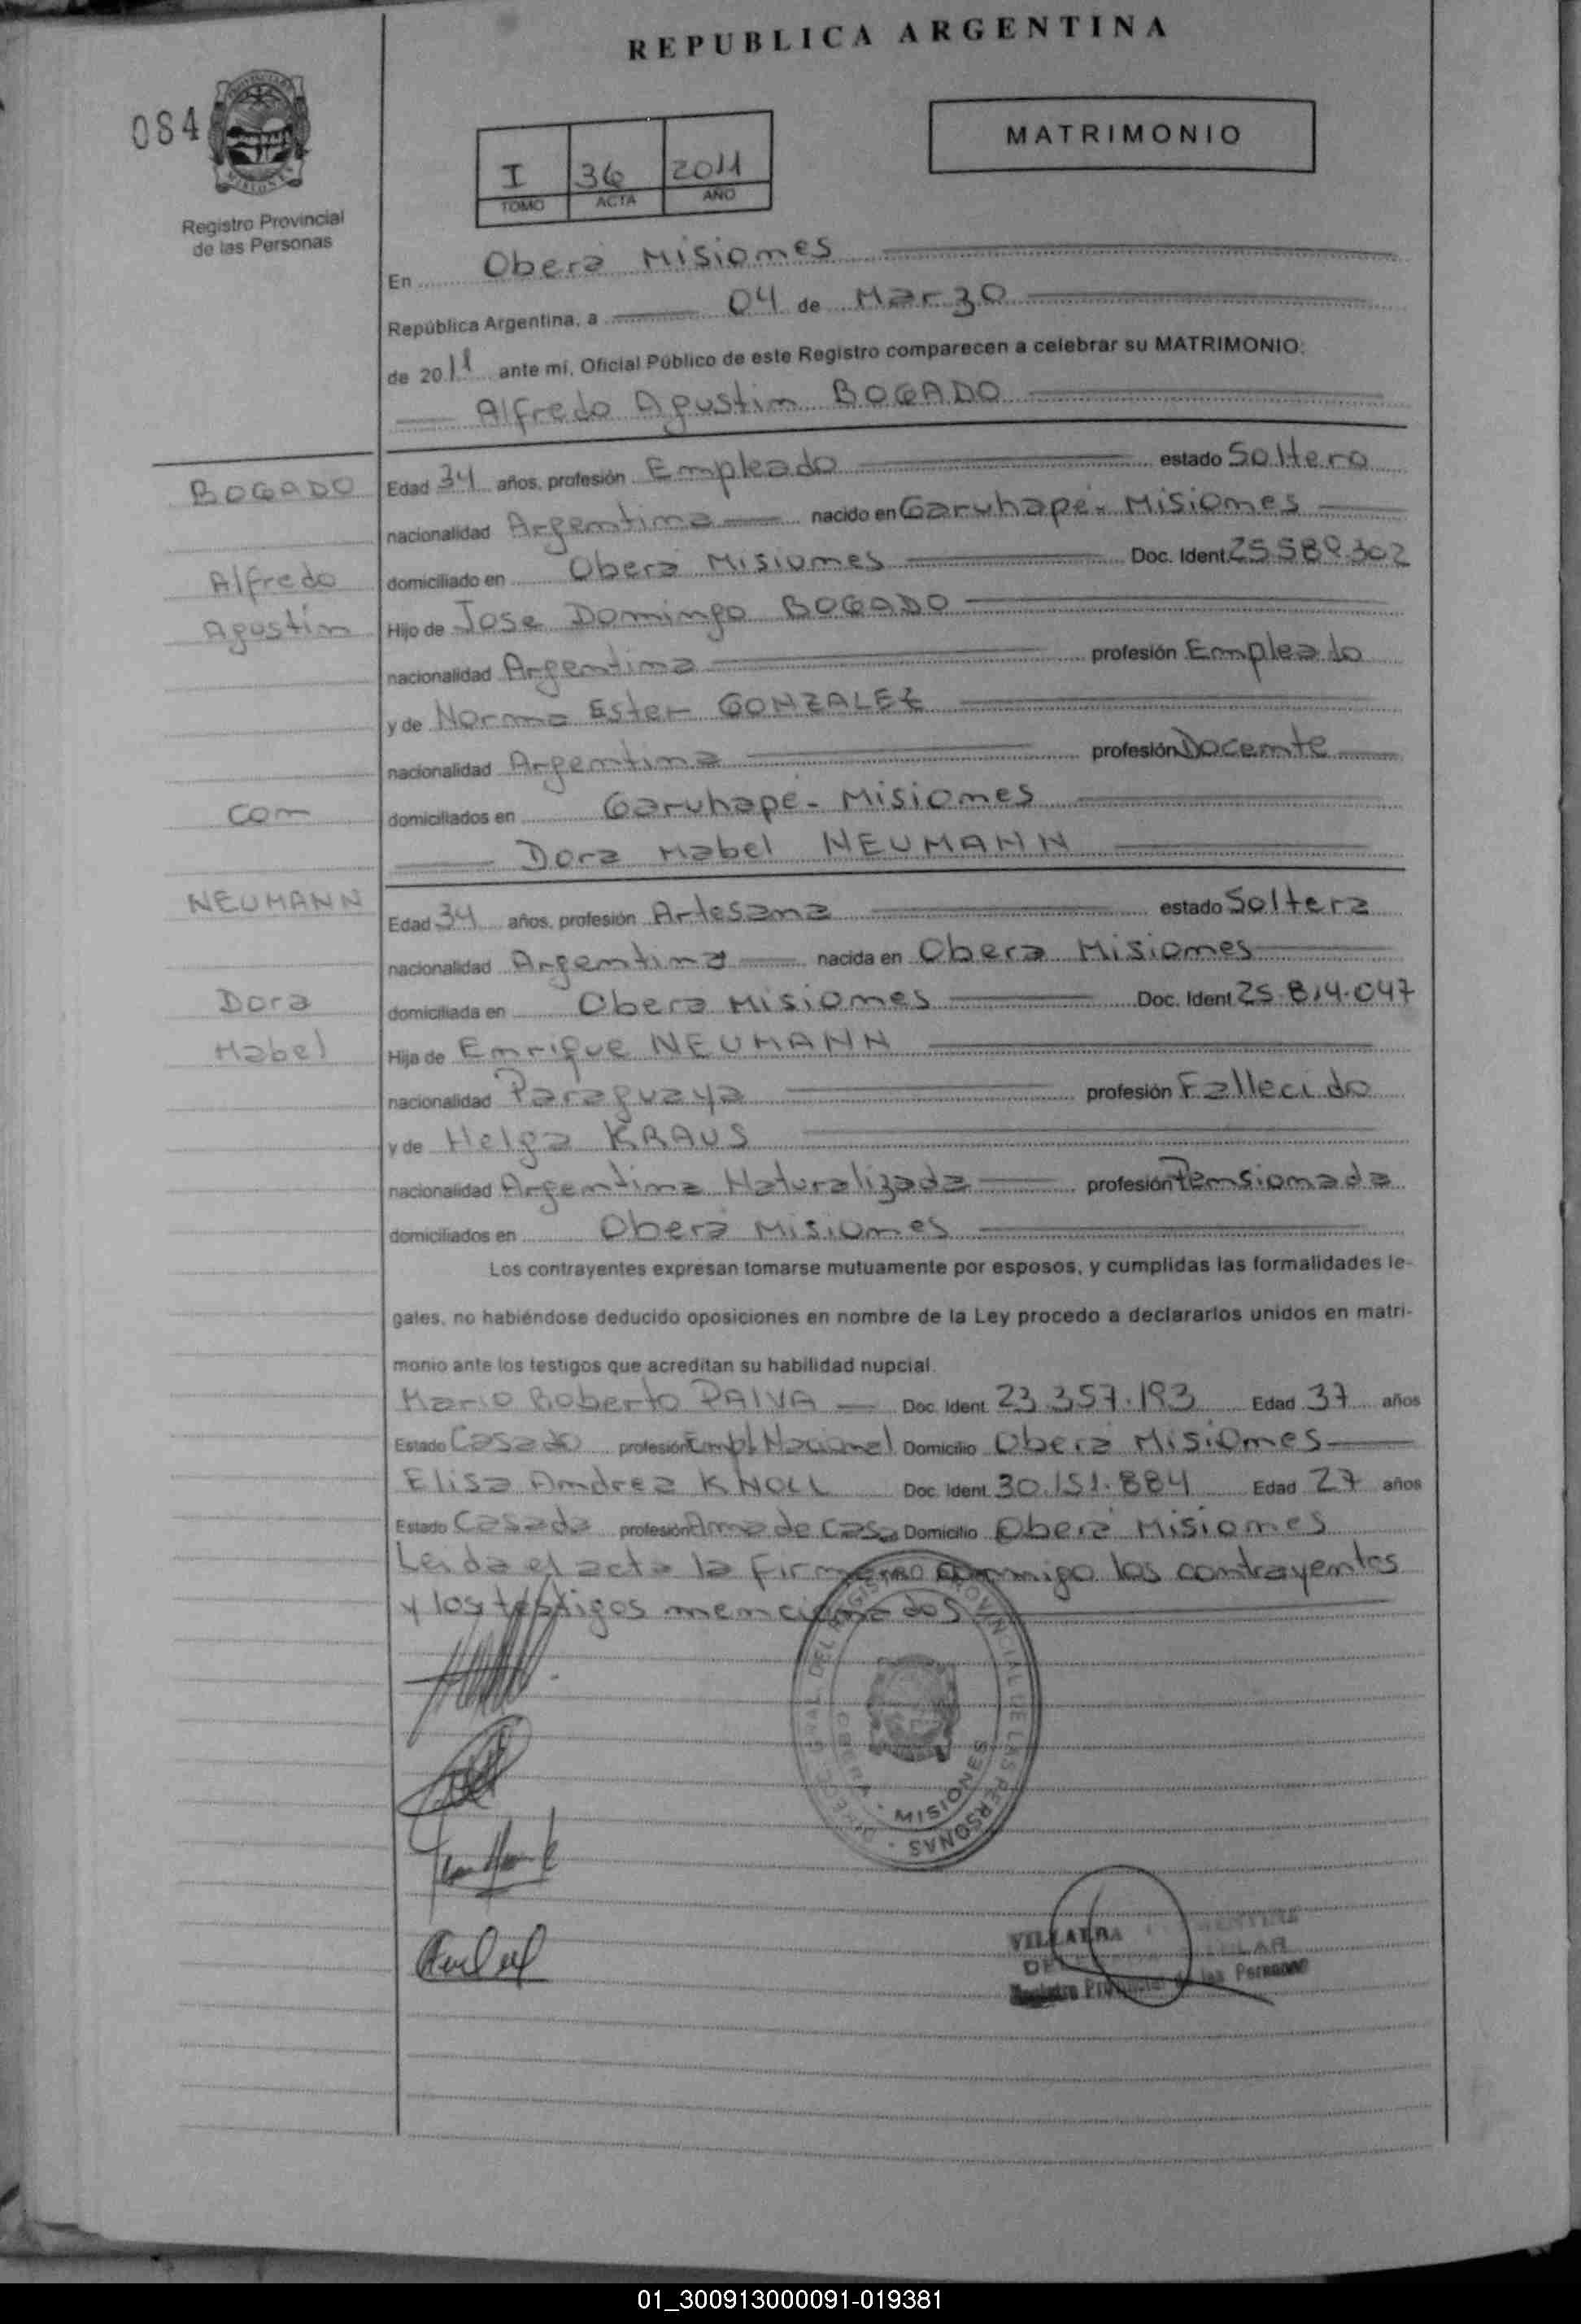 REPUBLICA ARGENTINA
084
Registro Provincial
de las Personas
MATRIMONIO
I 36 2011
TOMO ACTA AÑO
En Oberá Misiones
República Argentina, a 04 de Marzo
de 2011 ante mí, Oficial Público de este Registro comparecen a celebrar su MATRIMONIO:
Alfredo Agustin BOGADO
BOGADO
Edad 34 años, profesión Empleado estado Soltero
nacionalidad Argentina nacido en Garuhapé- Misiones
Alfredo
domiciliado en Oberá Misiones Doc. Ident. 25.589.302
Agustin
Hijo de Jose Domingo BOGADO
nacionalidad Argentina profesión Empleado
y de Norma Ester GONZALEZ
nacionalidad Argentina profesión Docente
con
domiciliados en Garuhapé- Misiones
Dora Mabel NEUMANN
NEUMANN
Edad 34 años, profesión Artesana estado Soltera
nacionalidad Argentina nacida en Oberá Misiones
Dora
domiciliada en Oberá Misiones Doc. Ident 25.814.047
Mabel
Hija de Enrique NEUMANN
nacionalidad Paraguaya profesión Fallecido
y de Helga KRAUS
nacionalidad Argentina Naturalizada profesión Pensionada
domiciliados en Oberá Misiones
Los contrayentes expresan tomarse mutuamente por esposos, y cumplidas las formalidades le-
gales, no habiéndose deducido oposiciones en nombre de la Ley procedo a declararlos unidos en matri-
monio ante los testigos que acreditan su habilidad nupcial.
Mario Roberto PAIVA Doc. Ident. 23.357.193 Edad 37 años
Estado Casado profesión Empl. Nacional Domicilio Oberá Misiones
Elisa Andrea KNOLL Doc. Ident. 30.151.884 Edad 27 años
Estado Casada profesión Ama de Casa Domicilio Oberá Misiones
Leida el acta la firman conmigo los contrayentes
y los testigos mencionados
DEL REGISTRO PROVINCIAL DE LAS PERSONAS
OBERA - MISIONES
VILLALBA
Registro Provincial de las Personas
01_300913000091-019381